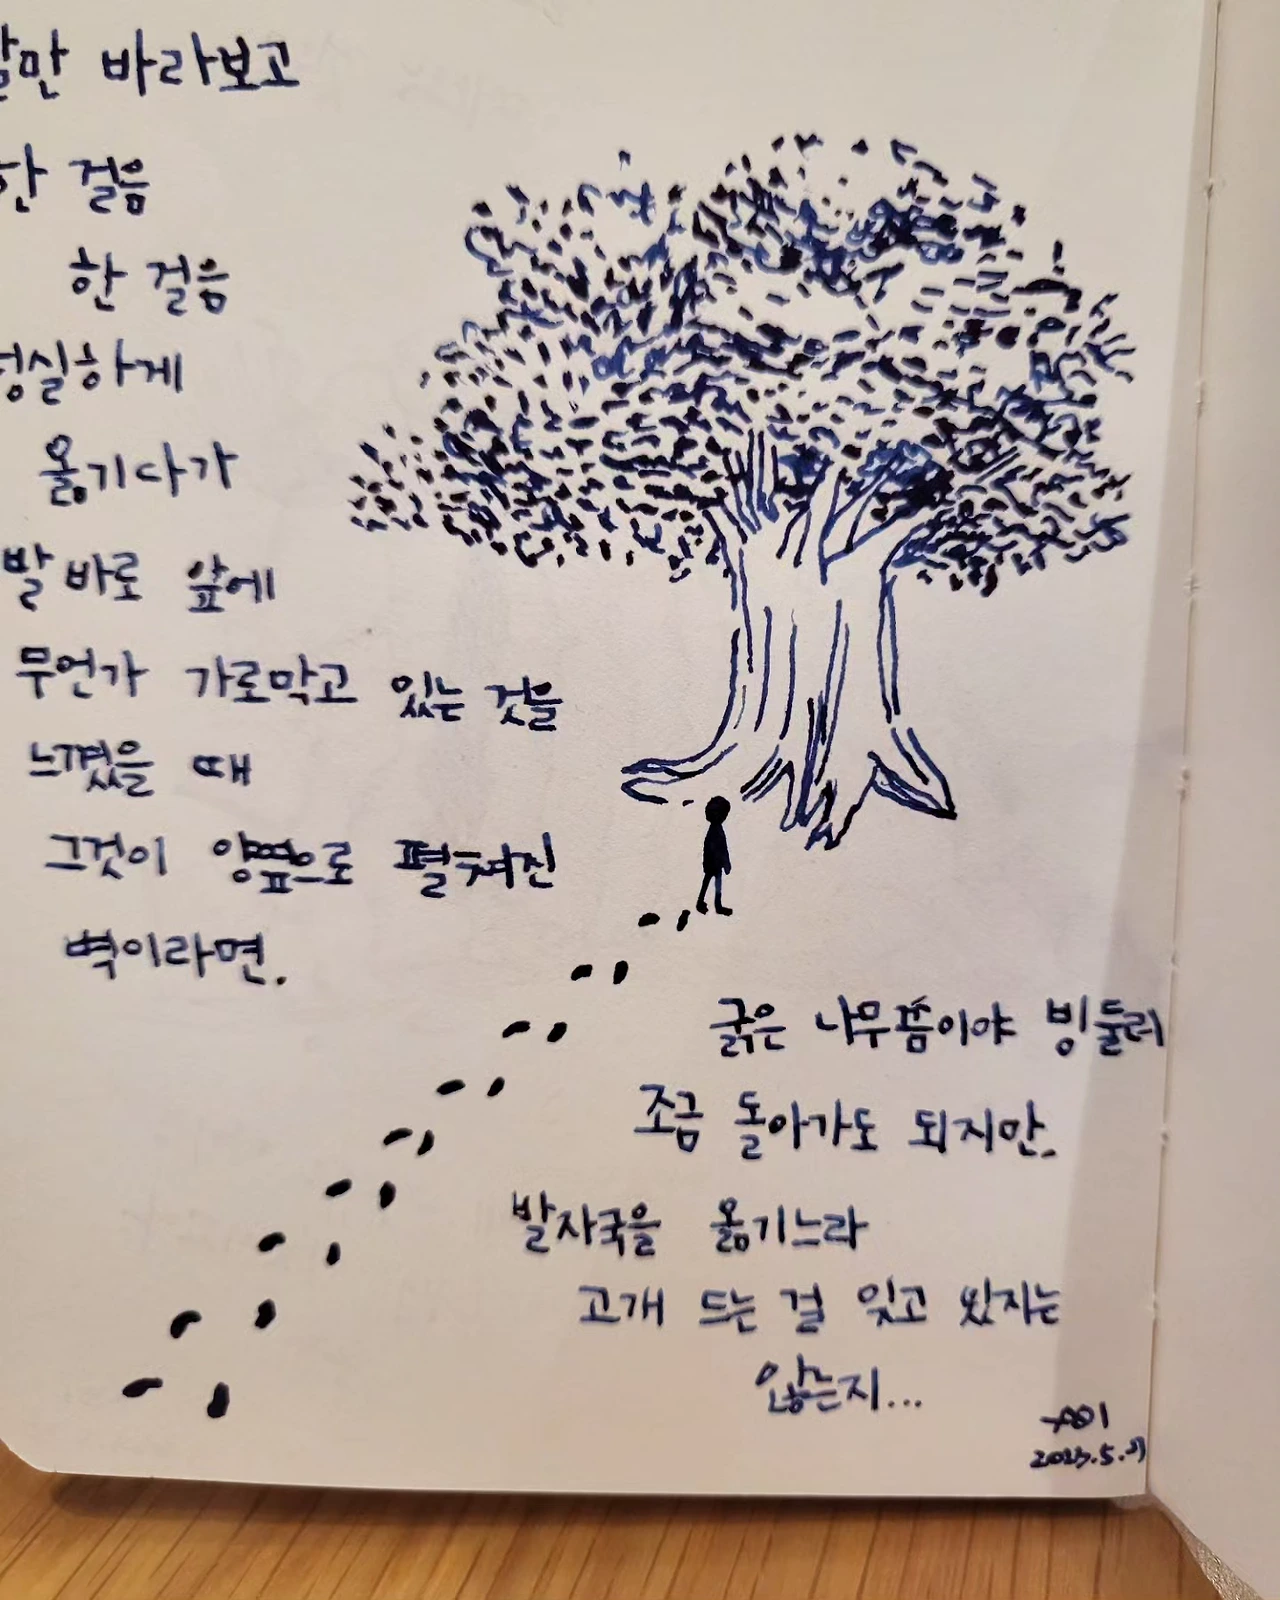 발만 바라보고
한 걸음
한 걸음
성실하게
옮기다가
발 바로 앞에
무언가 가로막고 있는 것을
느꼈을 때
그것이 양옆으로 펼쳐진
벽이라면.
굵은 나무쯤이야 빙둘러
조금 돌아가도 되지만.
발자국을 옮기느라
고개 드는 걸 잊고 있지는
않는지...
2023.5.